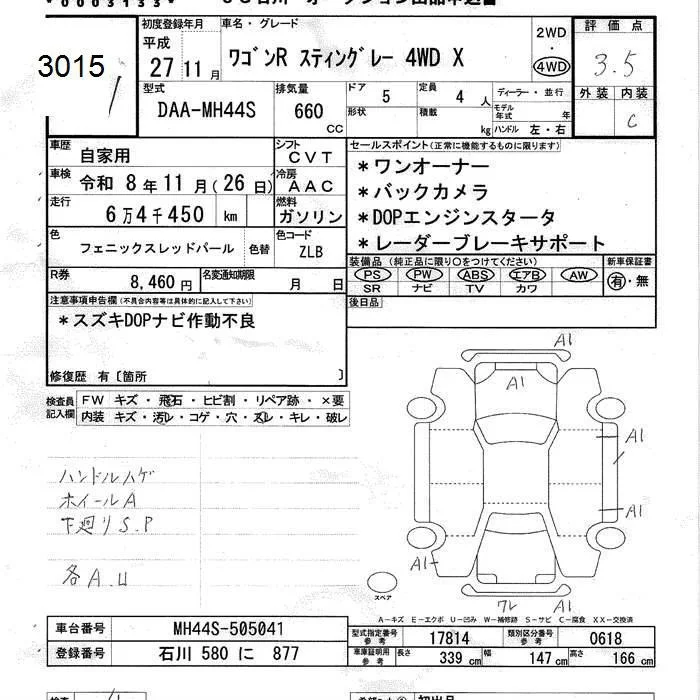 0003133
3015
初度登録年月 車名・グレード 2WD 評価点
平成 27 11月 ワゴンR スティングレー 4WD X 4WD 3.5
型式 排気量 ドア 定員 ディーラー・並行 外装 内装
DAA-MH44S 660 CC 5 4人 モデル年式 年 C
形状 積載 kg ハンドル 左・右
車歴 自家用 シフト CVT セールスポイント(正常に機能するものに限ります)
車検 令和 8年 11月(26日) 冷房 AAC *ワンオーナー
走行 6万4千450 km 燃料 ガソリン *バックカメラ
*DOPエンジンスタータ
*レーダーブレーキサポート
色 フェニックスレッドパール 色替 色コード ZLB
装備品(純正品に限り○をつけてください) 新車保証書
PS PW ABS エアB AW 有・無
SR ナビ TV カワ
R券 8,460円 名変通知期限 月 日
後日品
注意事項申告欄(不具合内容等は具体的に記入して下さい)
*スズキDOPナビ作動不良
修復歴 有〔箇所 〕
検査員記入欄 FW キズ・飛石・ヒビ割・リペア跡・×要
内装 キズ・汚レ・コゲ・穴・スレ・キレ・破レ
A1
A1
A1
A1
ハンドルハゲ
ホイールA
下廻りS.P
各A.U
スペア
ワレ A1
A-キズ E-エクボ U-凹み W-補修跡 S-サビ C-腐食 XX-交換済
車台番号 MH44S-505041 型式指定番号 参考 17814 類別区分番号 参考 0618
登録番号 石川 580 に 877 車庫証明用 参考 長さ 339cm 幅 147cm 高さ 166cm